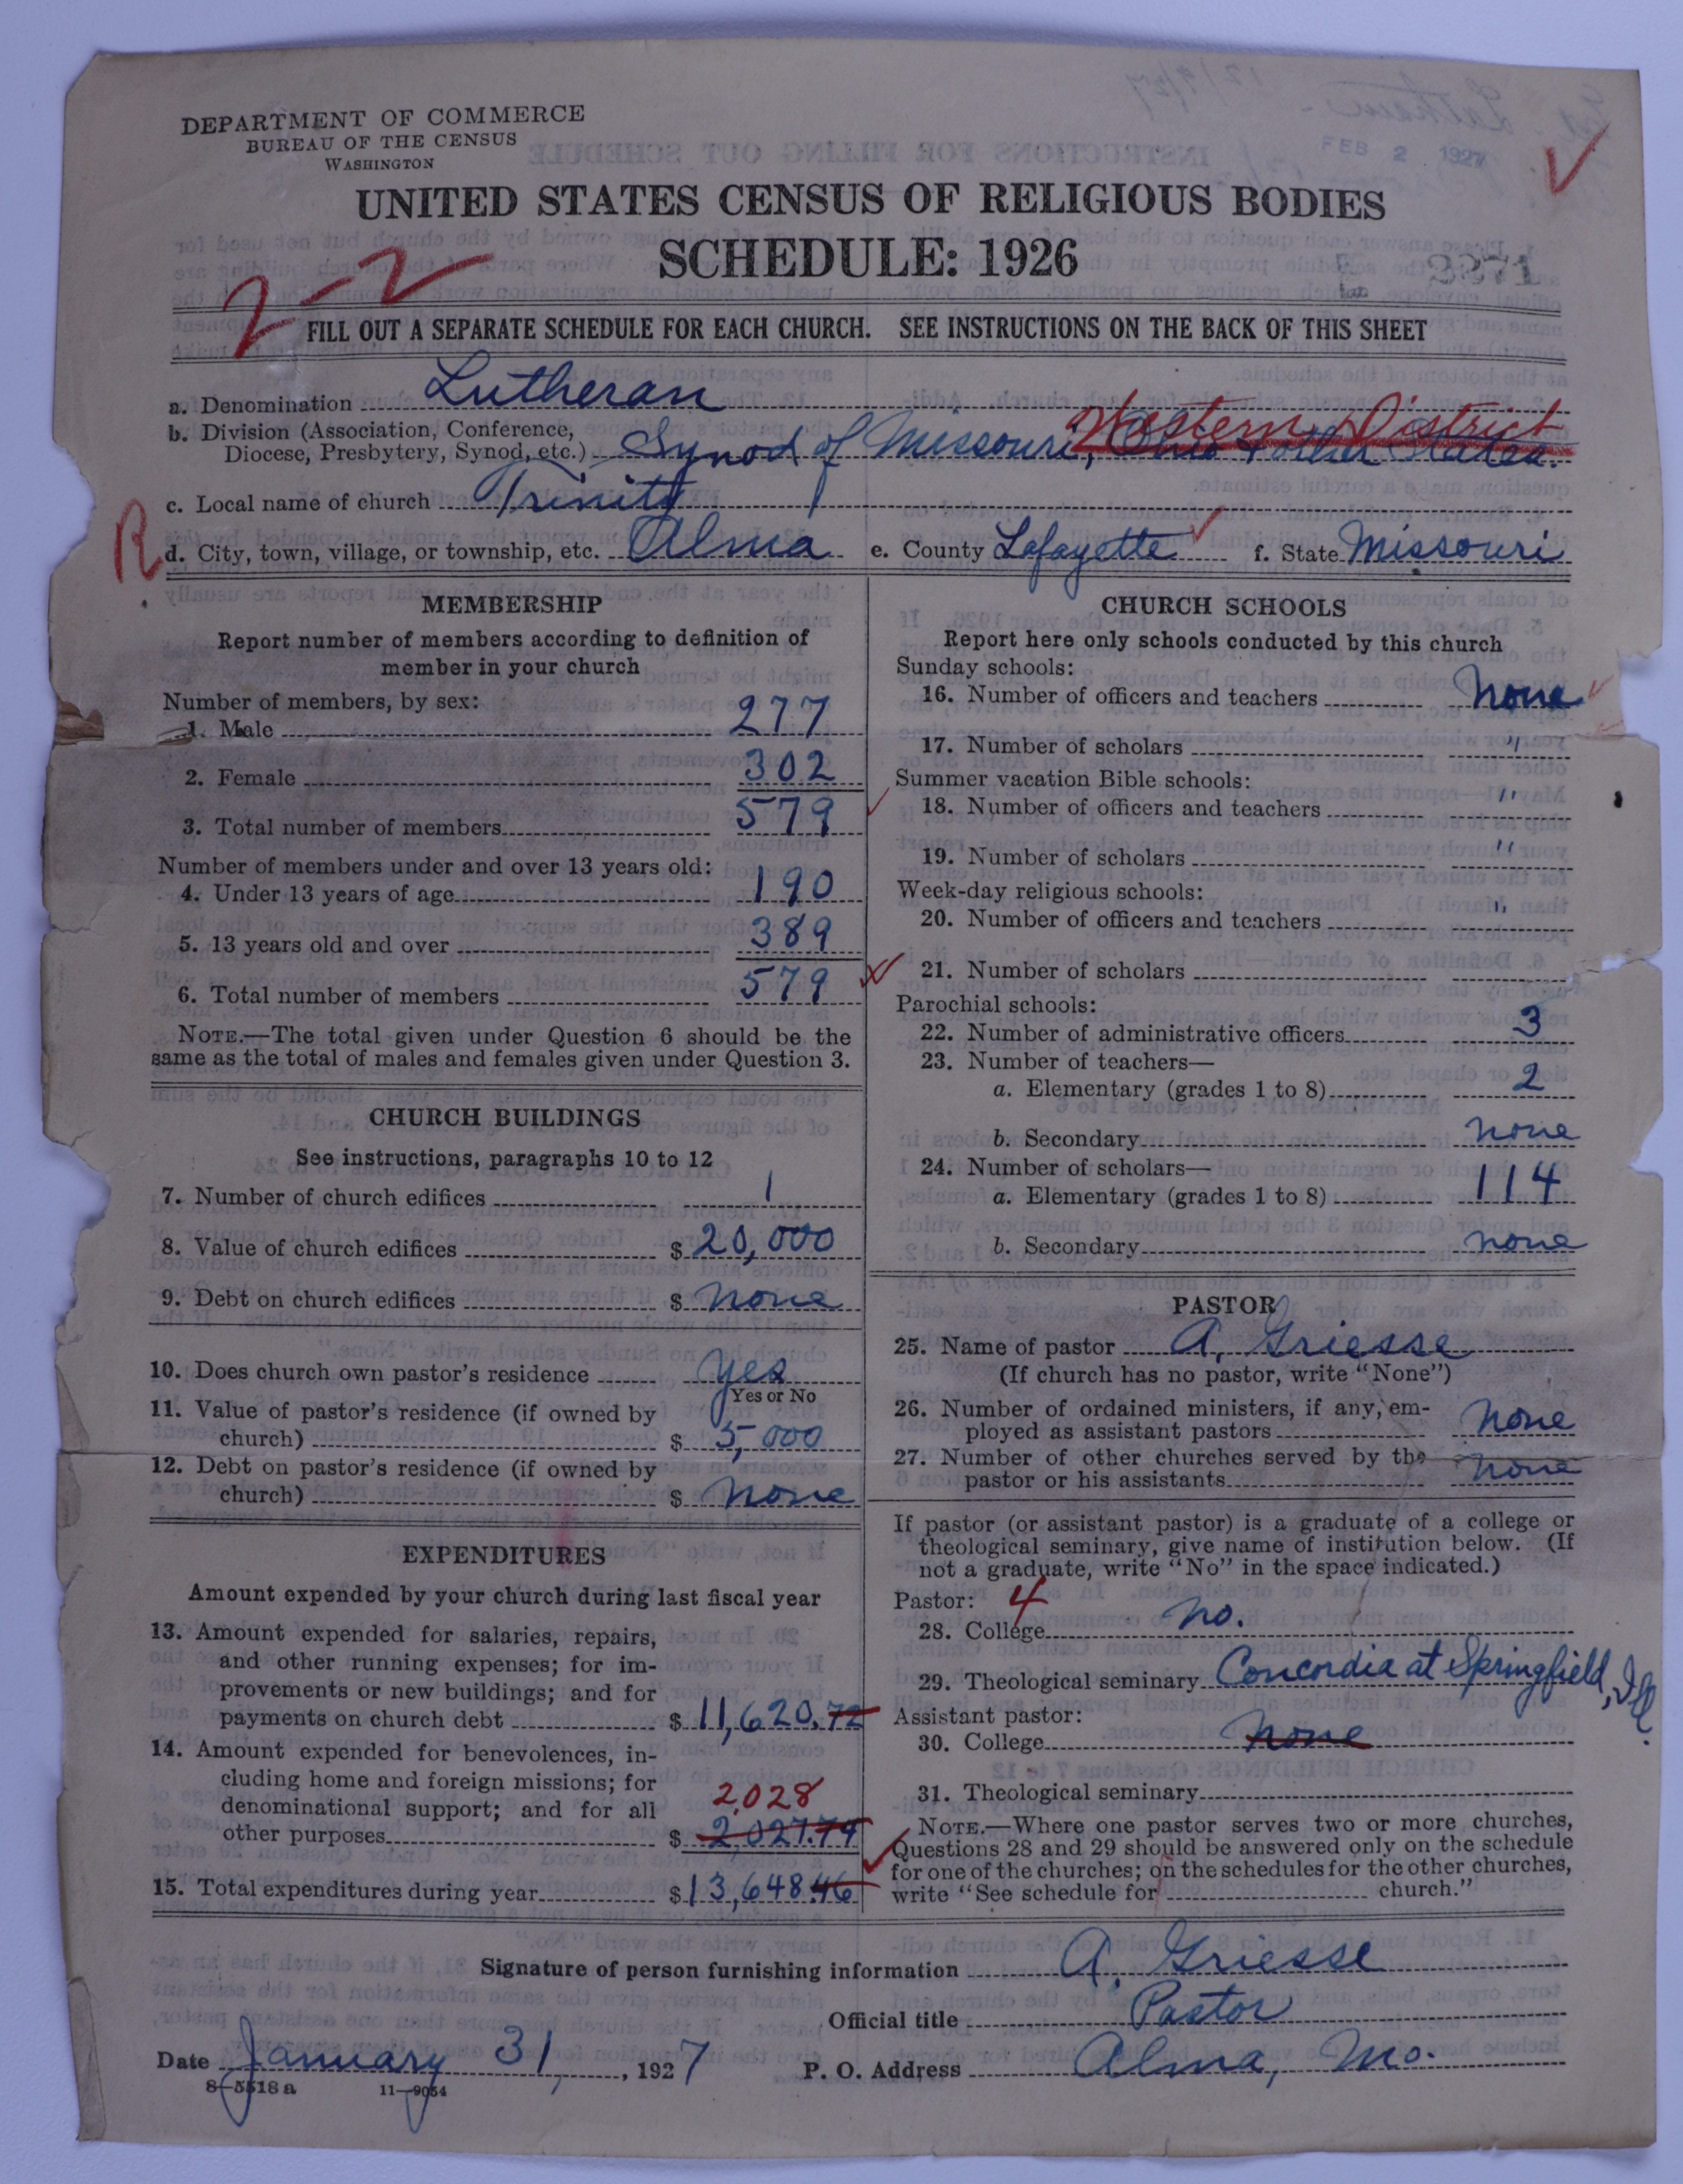 DEPARTMENT OF COMMERCE
BUREAU OF THE CENSUS
WASHINGTON
FEB 2 1927
UNITED STATES CENSUS OF RELIGIOUS BODIES
SCHEDULE: 1926
2-2
FILL OUT A SEPARATE SCHEDULE FOR EACH CHURCH. SEE INSTRUCTIONS ON THE BACK OF THIS SHEET
a. Denomination Lutheran
Western District
b. Division (Association, Conference,
Diocese, Presbytery, Synod, etc.) Synod of Missouri, Ohio & other States.
c. Local name of church Trinity
R
d. City, town, village, or township, etc. Alma e. County Lafayette f. State Missouri
MEMBERSHIP
Report number of members according to definition of
member in your church
Number of members, by sex:
1. Male 277
2. Female 302
3. Total number of members 579
Number of members under and over 13 years old:
4. Under 13 years of age 190
5. 13 years old and over 389
6. Total number of members 579
NOTE.—The total given under Question 6 should be the
same as the total of males and females given under Question 3.
CHURCH BUILDINGS
See instructions, paragraphs 10 to 12
7. Number of church edifices 1
8. Value of church edifices $ 20,000
9. Debt on church edifices $ none
10. Does church own pastor's residence yes
Yes or No
11. Value of pastor's residence (if owned by
church) $ 5,000
12. Debt on pastor's residence (if owned by
church) $ none
EXPENDITURES
Amount expended by your church during last fiscal year
13. Amount expended for salaries, repairs,
and other running expenses; for im-
provements or new buildings; and for
payments on church debt $ 11,620.72
14. Amount expended for benevolences, in-
cluding home and foreign missions; for
denominational support; and for all 2,028
other purposes $ 2,027.74
15. Total expenditures during year $ 13,648.46
CHURCH SCHOOLS
Report here only schools conducted by this church
Sunday schools:
16. Number of officers and teachers none
17. Number of scholars "
Summer vacation Bible schools:
18. Number of officers and teachers "
19. Number of scholars "
Week-day religious schools:
20. Number of officers and teachers "
21. Number of scholars
Parochial schools:
22. Number of administrative officers 3
23. Number of teachers—
a. Elementary (grades 1 to 8) 2
b. Secondary none
24. Number of scholars—
a. Elementary (grades 1 to 8) 114
b. Secondary none
PASTOR
25. Name of pastor A. Griesse
(If church has no pastor, write "None")
26. Number of ordained ministers, if any, em-
ployed as assistant pastors none
27. Number of other churches served by the
pastor or his assistants none
If pastor (or assistant pastor) is a graduate of a college or
theological seminary, give name of institution below. (If
not a graduate, write "No" in the space indicated.)
Pastor: 4
28. College no.
29. Theological seminary Concordia at Springfield, Ill.
Assistant pastor:
30. College none
31. Theological seminary
NOTE.—Where one pastor serves two or more churches,
Questions 28 and 29 should be answered only on the schedule
for one of the churches; on the schedules for the other churches,
write "See schedule for church."
Signature of person furnishing information A. Griesse
Official title Pastor
Date January 31, 1927 P. O. Address Alma, Mo.
8-5518 a 11-9054